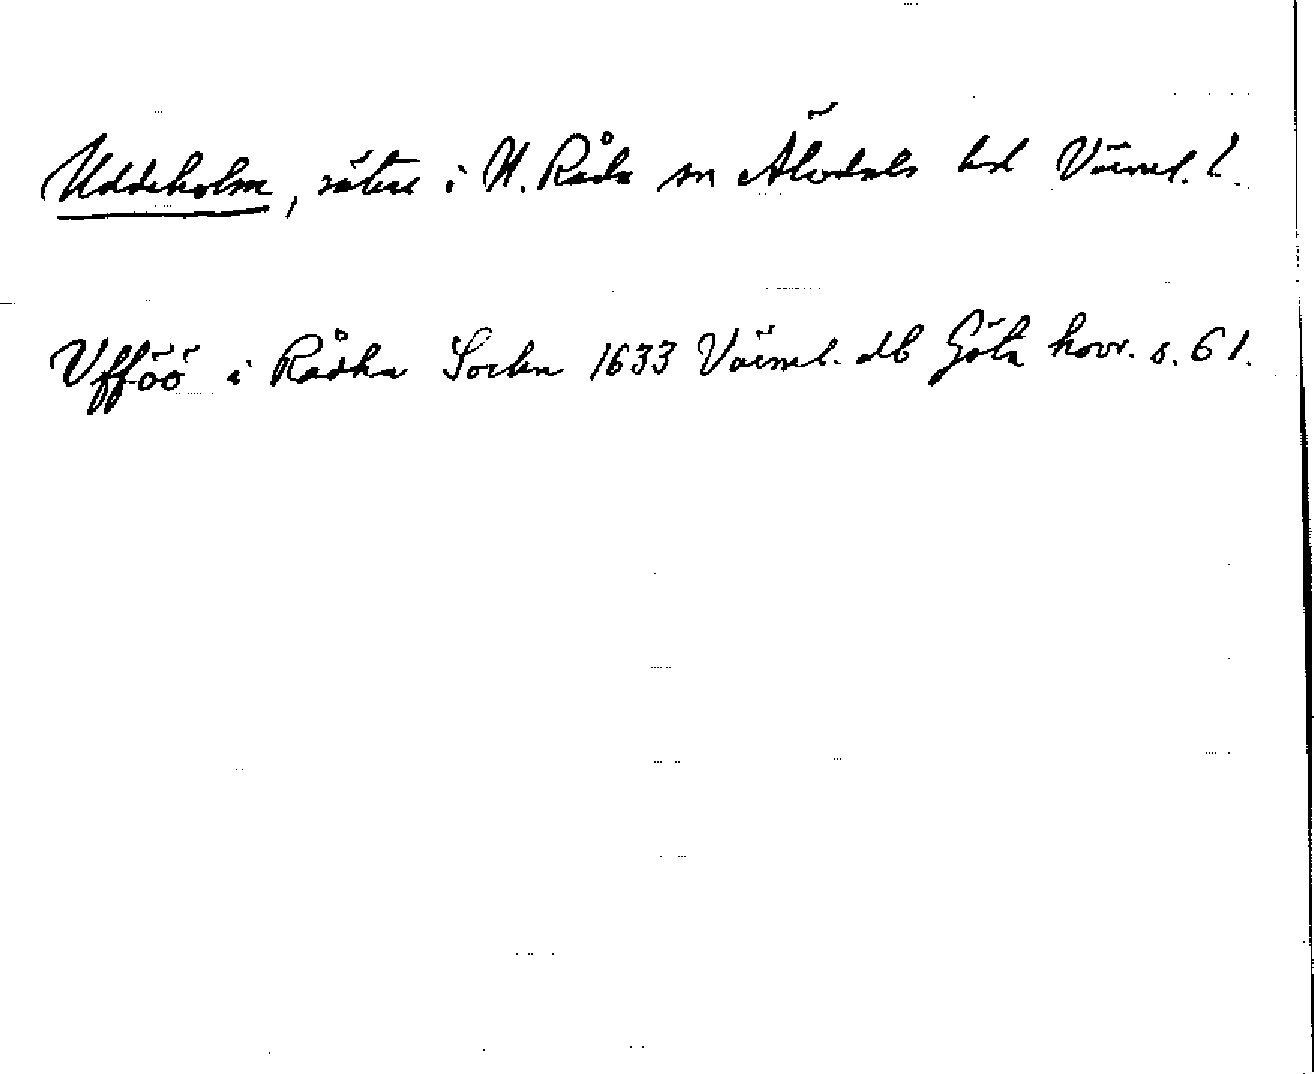 Uddeholm, säteri i N. Råda sn Älvdals hd Värml. l.
Vfföö i Rådha Sochn 1633 Värml. db Göta hovr. s. 61.